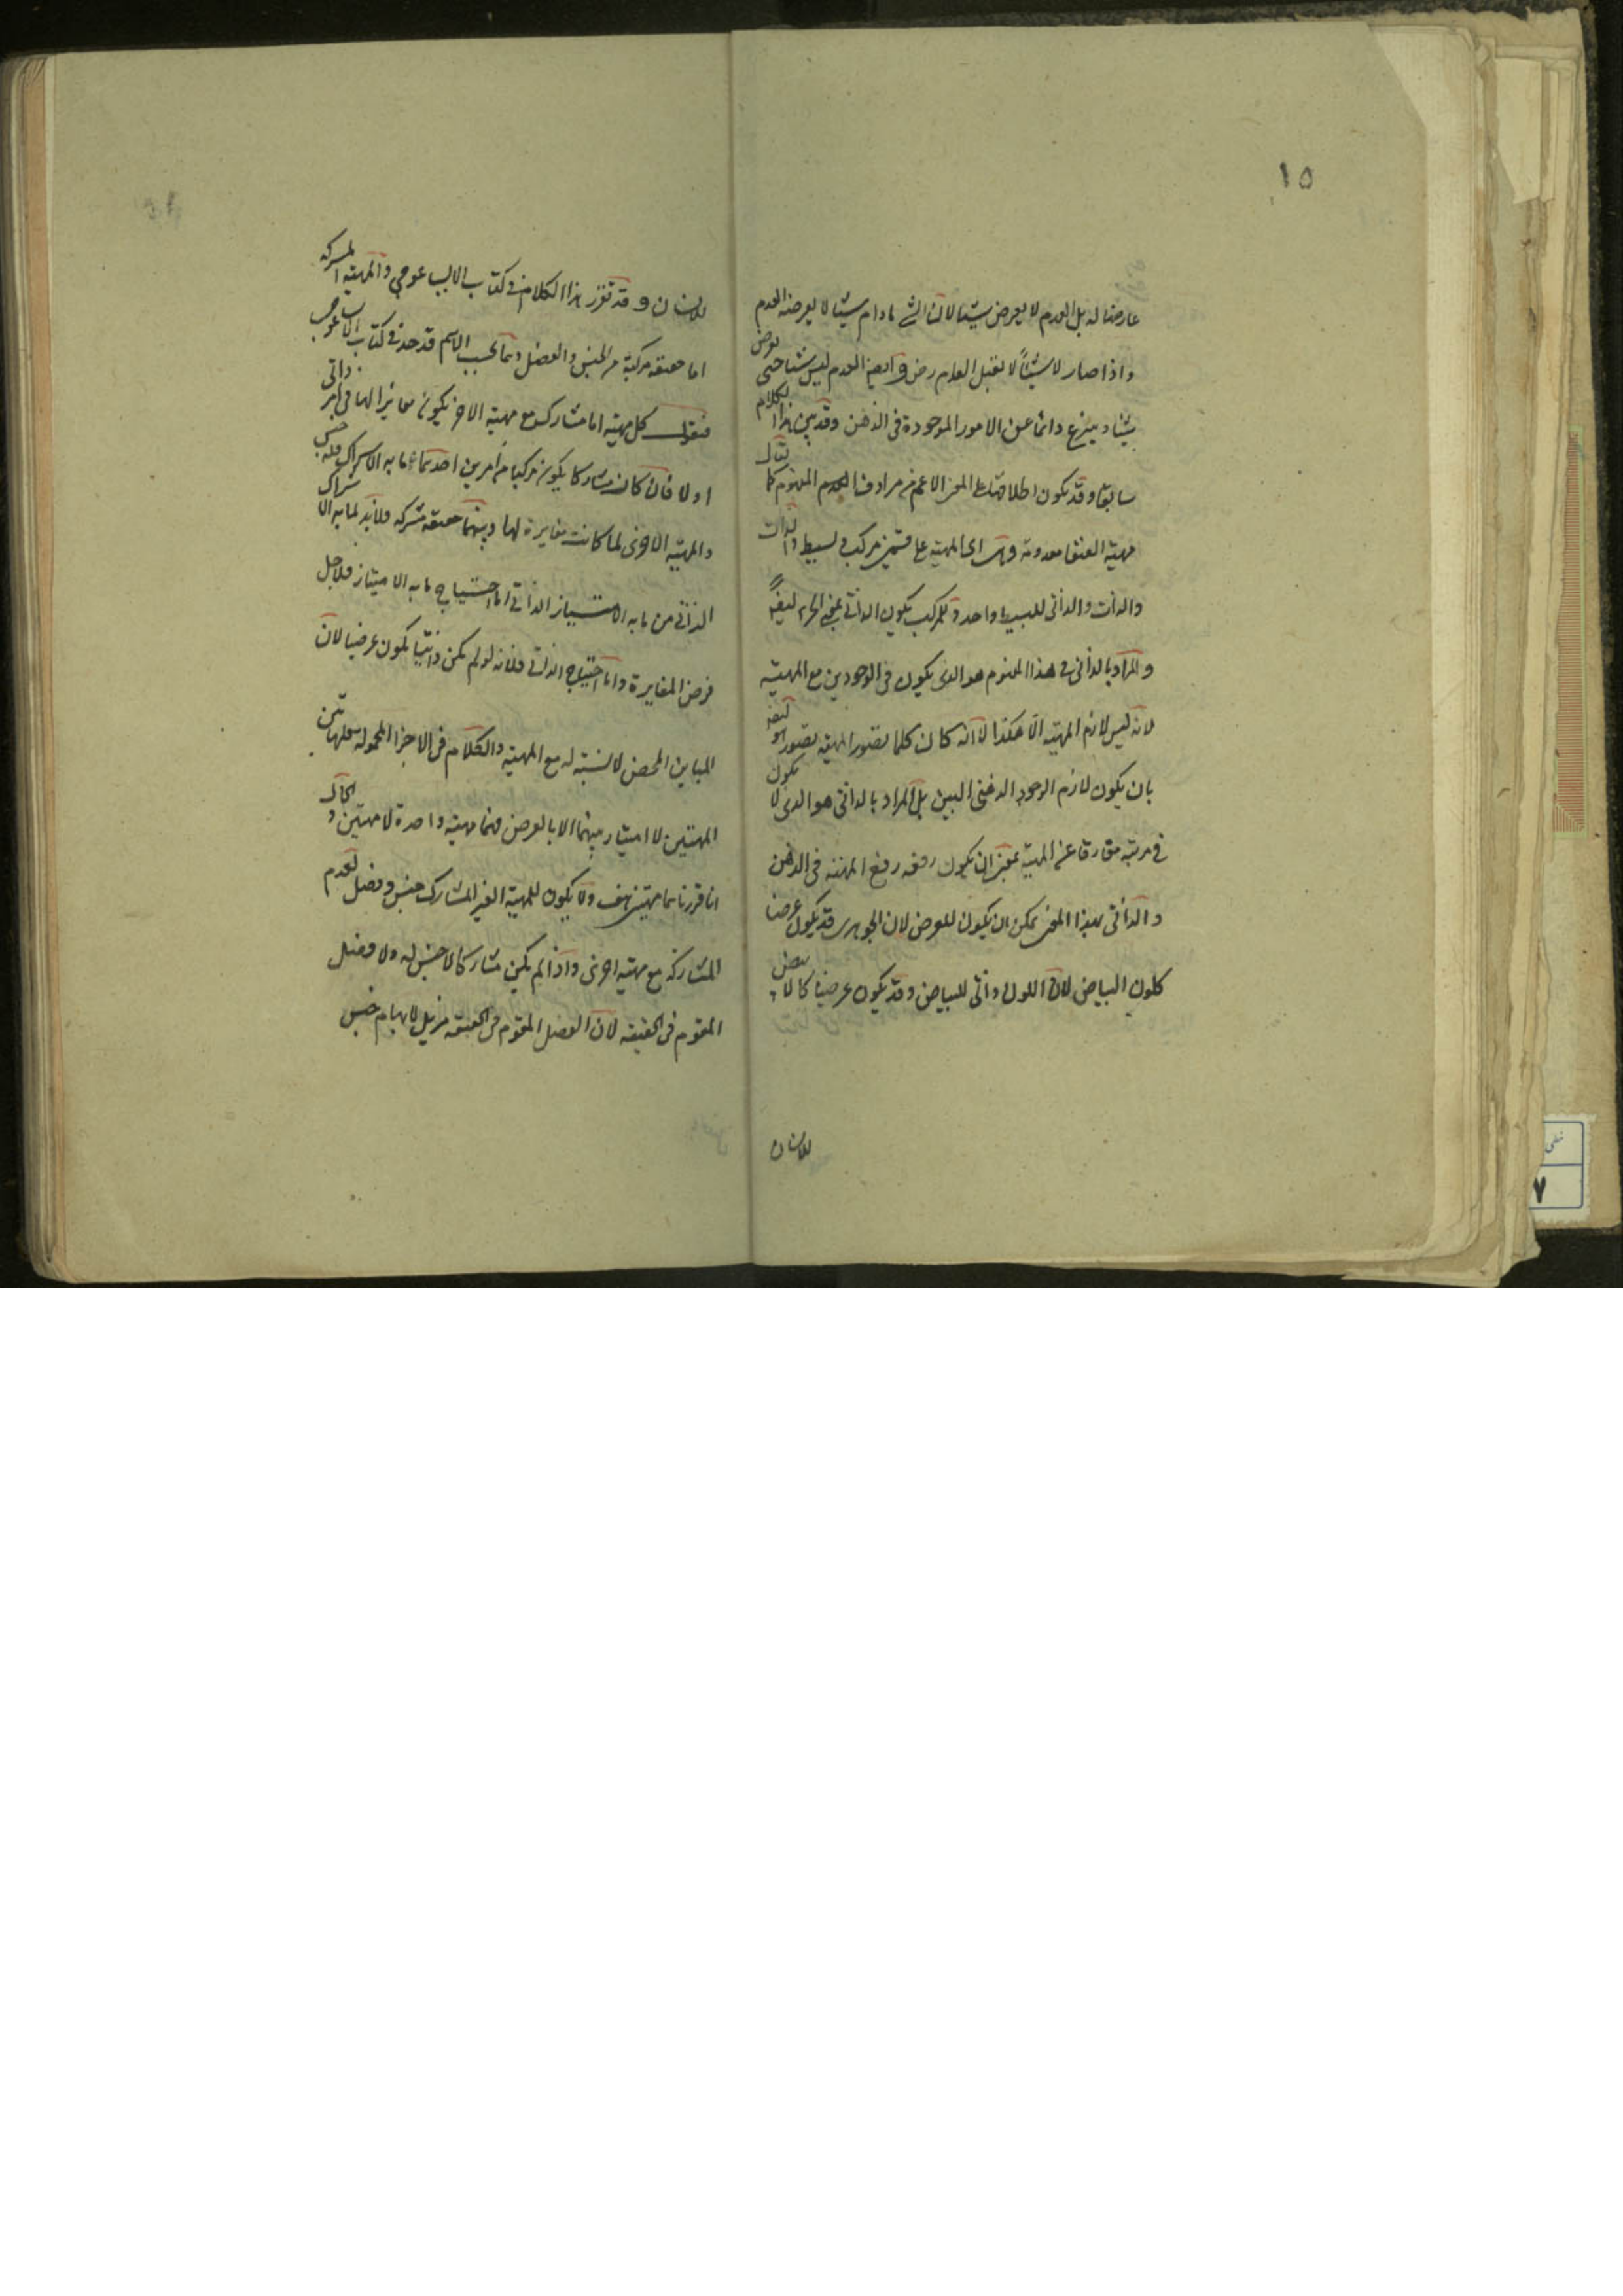 ١٥
عارضا له بل العدم لا يعرض شيئا لان الشئ مادام شيئا لا يعرضه العدم
واذا صار لا شيئاً لا يقبل العدم وايضا العدم ليس شيئا حتى يعرض
شيئا وينزع دائما عن الامور الموجودة فى الذهن وقد بين هذا الكلام
سابقا وقد يكون اطلاقها على المعنى الاعم من مرادف العدم المفهوم كما يقال
مهية العنقا معدومة المهية على قسمين مركب وبسيط والذات
والذات والذاتى للبسيط واحد وللمركب يكون الذاتى بمعنى الجزء ايضاً
والمراد بالذاتى فى هذا المفهوم هو الذى يكون فى الوجودين مع المهية
لانه ليس لازم المهية الا هكذا لا انه كان كلما تصور المهية تصور هو ايضا
بان يكون لازم الوجود الذهنى البين بل المراد بالذاتى هو الذى لا يكون
فى مرتبة مفارقا عن المهية بمعنى ان يكون رفعه رفع المهية فى الذهن
والذاتى بهذا المعنى يمكن ان يكون للعرض لان الجوهرى قد يكون عرضا
كلون البياض لان اللون ذاتى للبياض وقد يكون عرضيا كالابيض
للانسان
للانسان وقد تقرر هذا الكلام فى كتاب الايساغوجى والمهية المشتركة
اما حقيقة مركبة من الجنس والفصل وما بحسب الاسم قد حد فى كتاب الايساغوجى
فنقول كل مهية اما مشارك مع مهية الاخر يكون مغايرا لها فى امر ذاتى
اولا فان كان مشاركا يكون مركبا من امرين احدهما ما به الاشتراك فله جنس
والمهية الاخرى لما كانت مغايرة لها وبينهما حقيقة مشتركة فلابد لما به الاشتراك
الذاتى من ما به الامتياز الذاتى اما احتياج ما به الامتياز فلاجل
فرض المغايرة واما احتياج الذاتى فلانه لو لم يكن ذاتيا يكون عرضيا لان
المباين المحض لا نسبة له مع المهية والكلام فى الاجزاء المحمولة
المهيتين لا امتياز بينهما الا بالعرض فهما مهية واحدة لا مهيتين والحال
انا قررنا مهيتين هف ولا يكون للمهية الغير المشارك جنس وفصل لعدم
المشاركة مع مهية اخرى واذا لم يكن مشاركا لا جنس له ولا فصل
المقوم فى الحقيقة لان الفصل المقوم فى الحقيقة مزيل لابهام جنس
٧